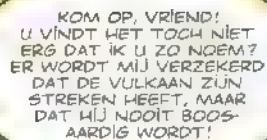 KOM OP, VRIEND!
U VINDT HET TOCH NIET
ERG DAT IK U ZO NOEM?
ER WORDT MIJ VERZEKERD
DAT DE VULKAAN ZIJN
STREKEN HEEFT, MAAR
DAT HIJ NOOIT BOOS-
AARDIG WORDT!